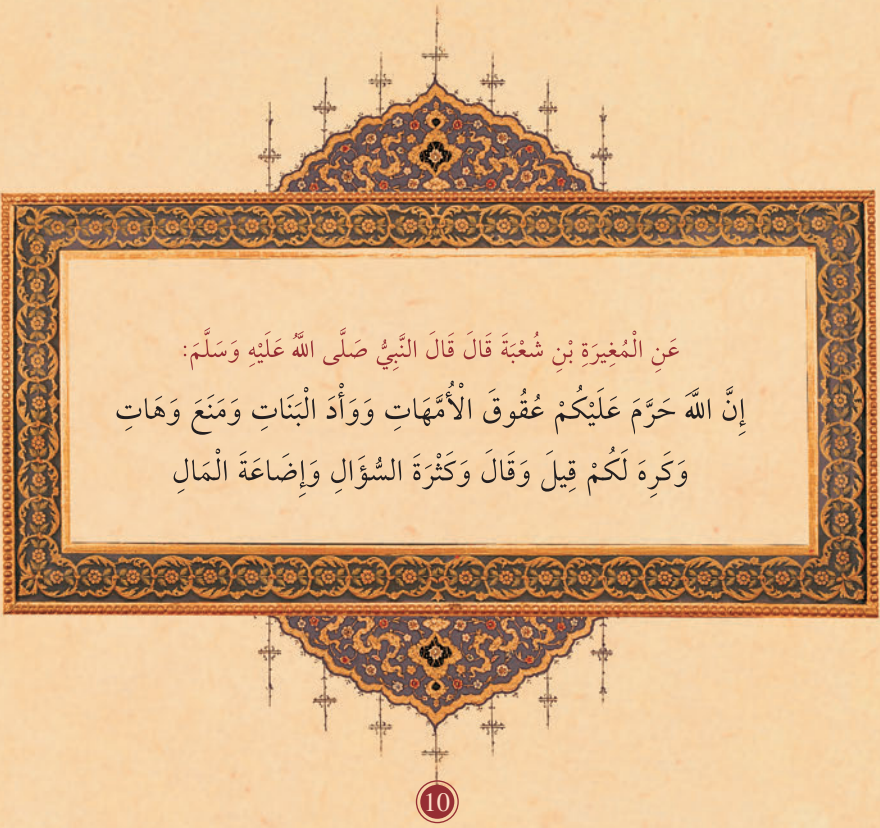 عَنِ الْمُغِيرَةِ بْنِ شُعْبَةَ قَالَ قَالَ النَّبِيُّ صَلَّى اللَّهُ عَلَيْهِ وَسَلَّمَ:
إِنَّ اللَّهَ حَرَّمَ عَلَيْكُمْ عُقُوقَ الْأُمَّهَاتِ وَوَأْدَ الْبَنَاتِ وَمَنَعَ وَهَاتِ
وَكَرِهَ لَكُمْ قِيلَ وَقَالَ وَكَثْرَةَ السُّؤَالِ وَإِضَاعَةَ الْمَالِ
10